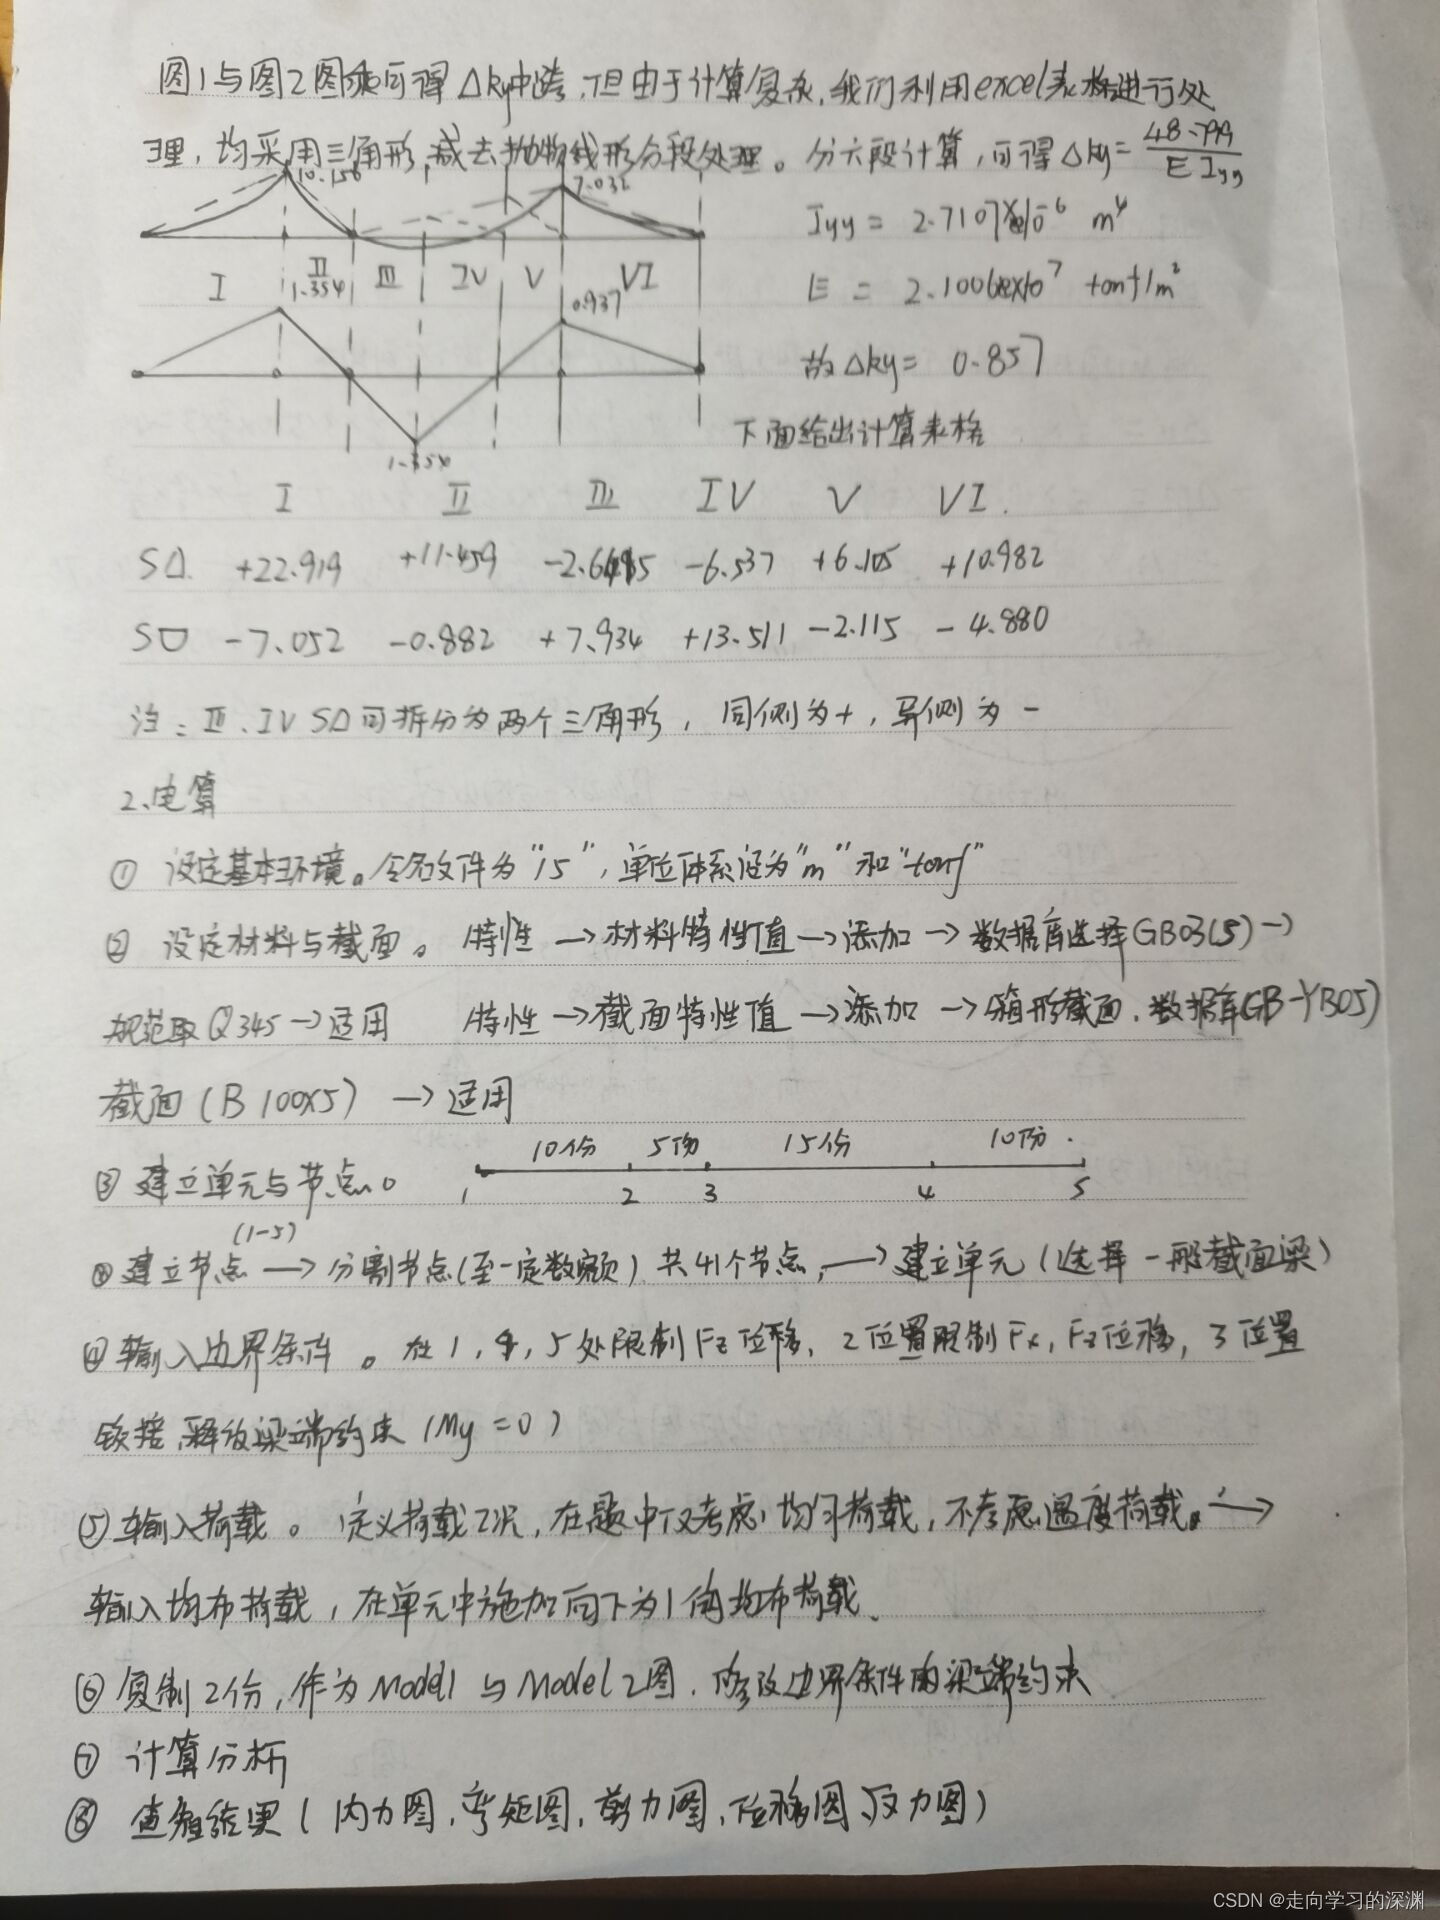 图1与图2图乘可得△ky中跨,但由于计算复杂,我们利用excel表格进行处
理,均采用三角形,减去抛物线形分段处理。分六段计算,可得△ky= 48.799 / EIyy
10.156
7.032
Iyy = 2.7107×10⁻⁶ m⁴
I II III IV V VI
1.354
0.937
E = 2.1006×10⁷ tonf/m²
故△ky= 0.857
下面给出计算表格
1.354
I II III IV V VI.
S△ +22.919 +11.459 -6.537 +6.105 +10.982
S -7.052 -0.882 +7.934 +13.511 -2.115 -4.880
注:III、IV S△可拆分为两个三角形,同侧为+,异侧为-
2、电算
① 设定基本环境。命名文件为"15",单位体系设为"m"和"tonf"
② 设定材料与截面。特性→材料特性值→添加→数据库选择GB03(S)→
规范取Q345→适用 特性→截面特性值→添加→箱形截面.数据库GB-YB05)
截面(B 100×5)→适用
10份 5份 15份 10份.
③ 建立单元与节点。
1 2 3 4 5
(1-5)
建立节点→分割节点(至一定数额)共41个节点,→建立单元(选择一般截面梁)
④ 输入边界条件。在1,4,5处限制Fz位移,2位置限制Fx,Fz位移,3位置
铰接,释放梁端约束(My=0)
⑤ 输入荷载。定义荷载工况,在题中仅考虑均匀荷载,不考虑温度荷载。→
输入均布荷载,在单元中施加向下为1的均布荷载、
⑥ 复制2份,作为Model1与Model2图.修改边界条件的梁端约束
⑦ 计算分析
⑧ 查看结果(内力图,弯矩图,剪力图,位移图、反力图)
CSDN @走向学习的深渊